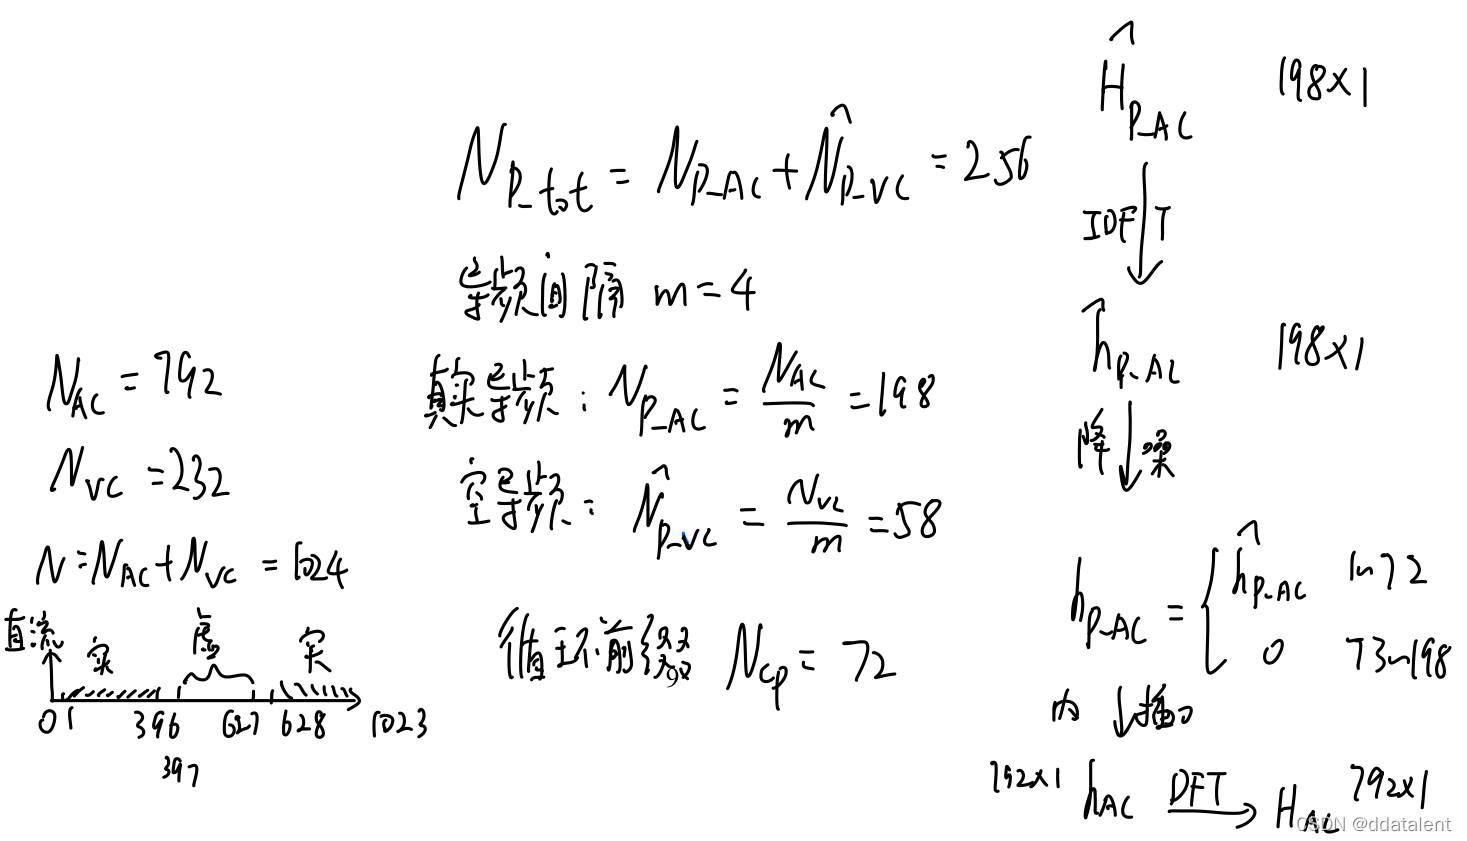 N_AC = 792
N_VC = 232
N = N_AC + N_VC = 1024
直流
实 虚 实
0 1 396 627 628 1023
397
N_P_tot = N_P_AC + N̂_P_VC = 256
导频间隔 m = 4
真实导频: N_P_AC = N_AC / m = 198
空导频: N̂_P_VC = N_VC / m = 58
循环前缀 N_cp = 72
Ĥ_P_AC 198×1
IDFT
ĥ_P_AC 198×1
降噪
h_P_AC = { ĥ_P_AC 1~72
0 73~198
内插
792×1 h_AC DFT → H_AC 792×1
CSDN @ddatalent